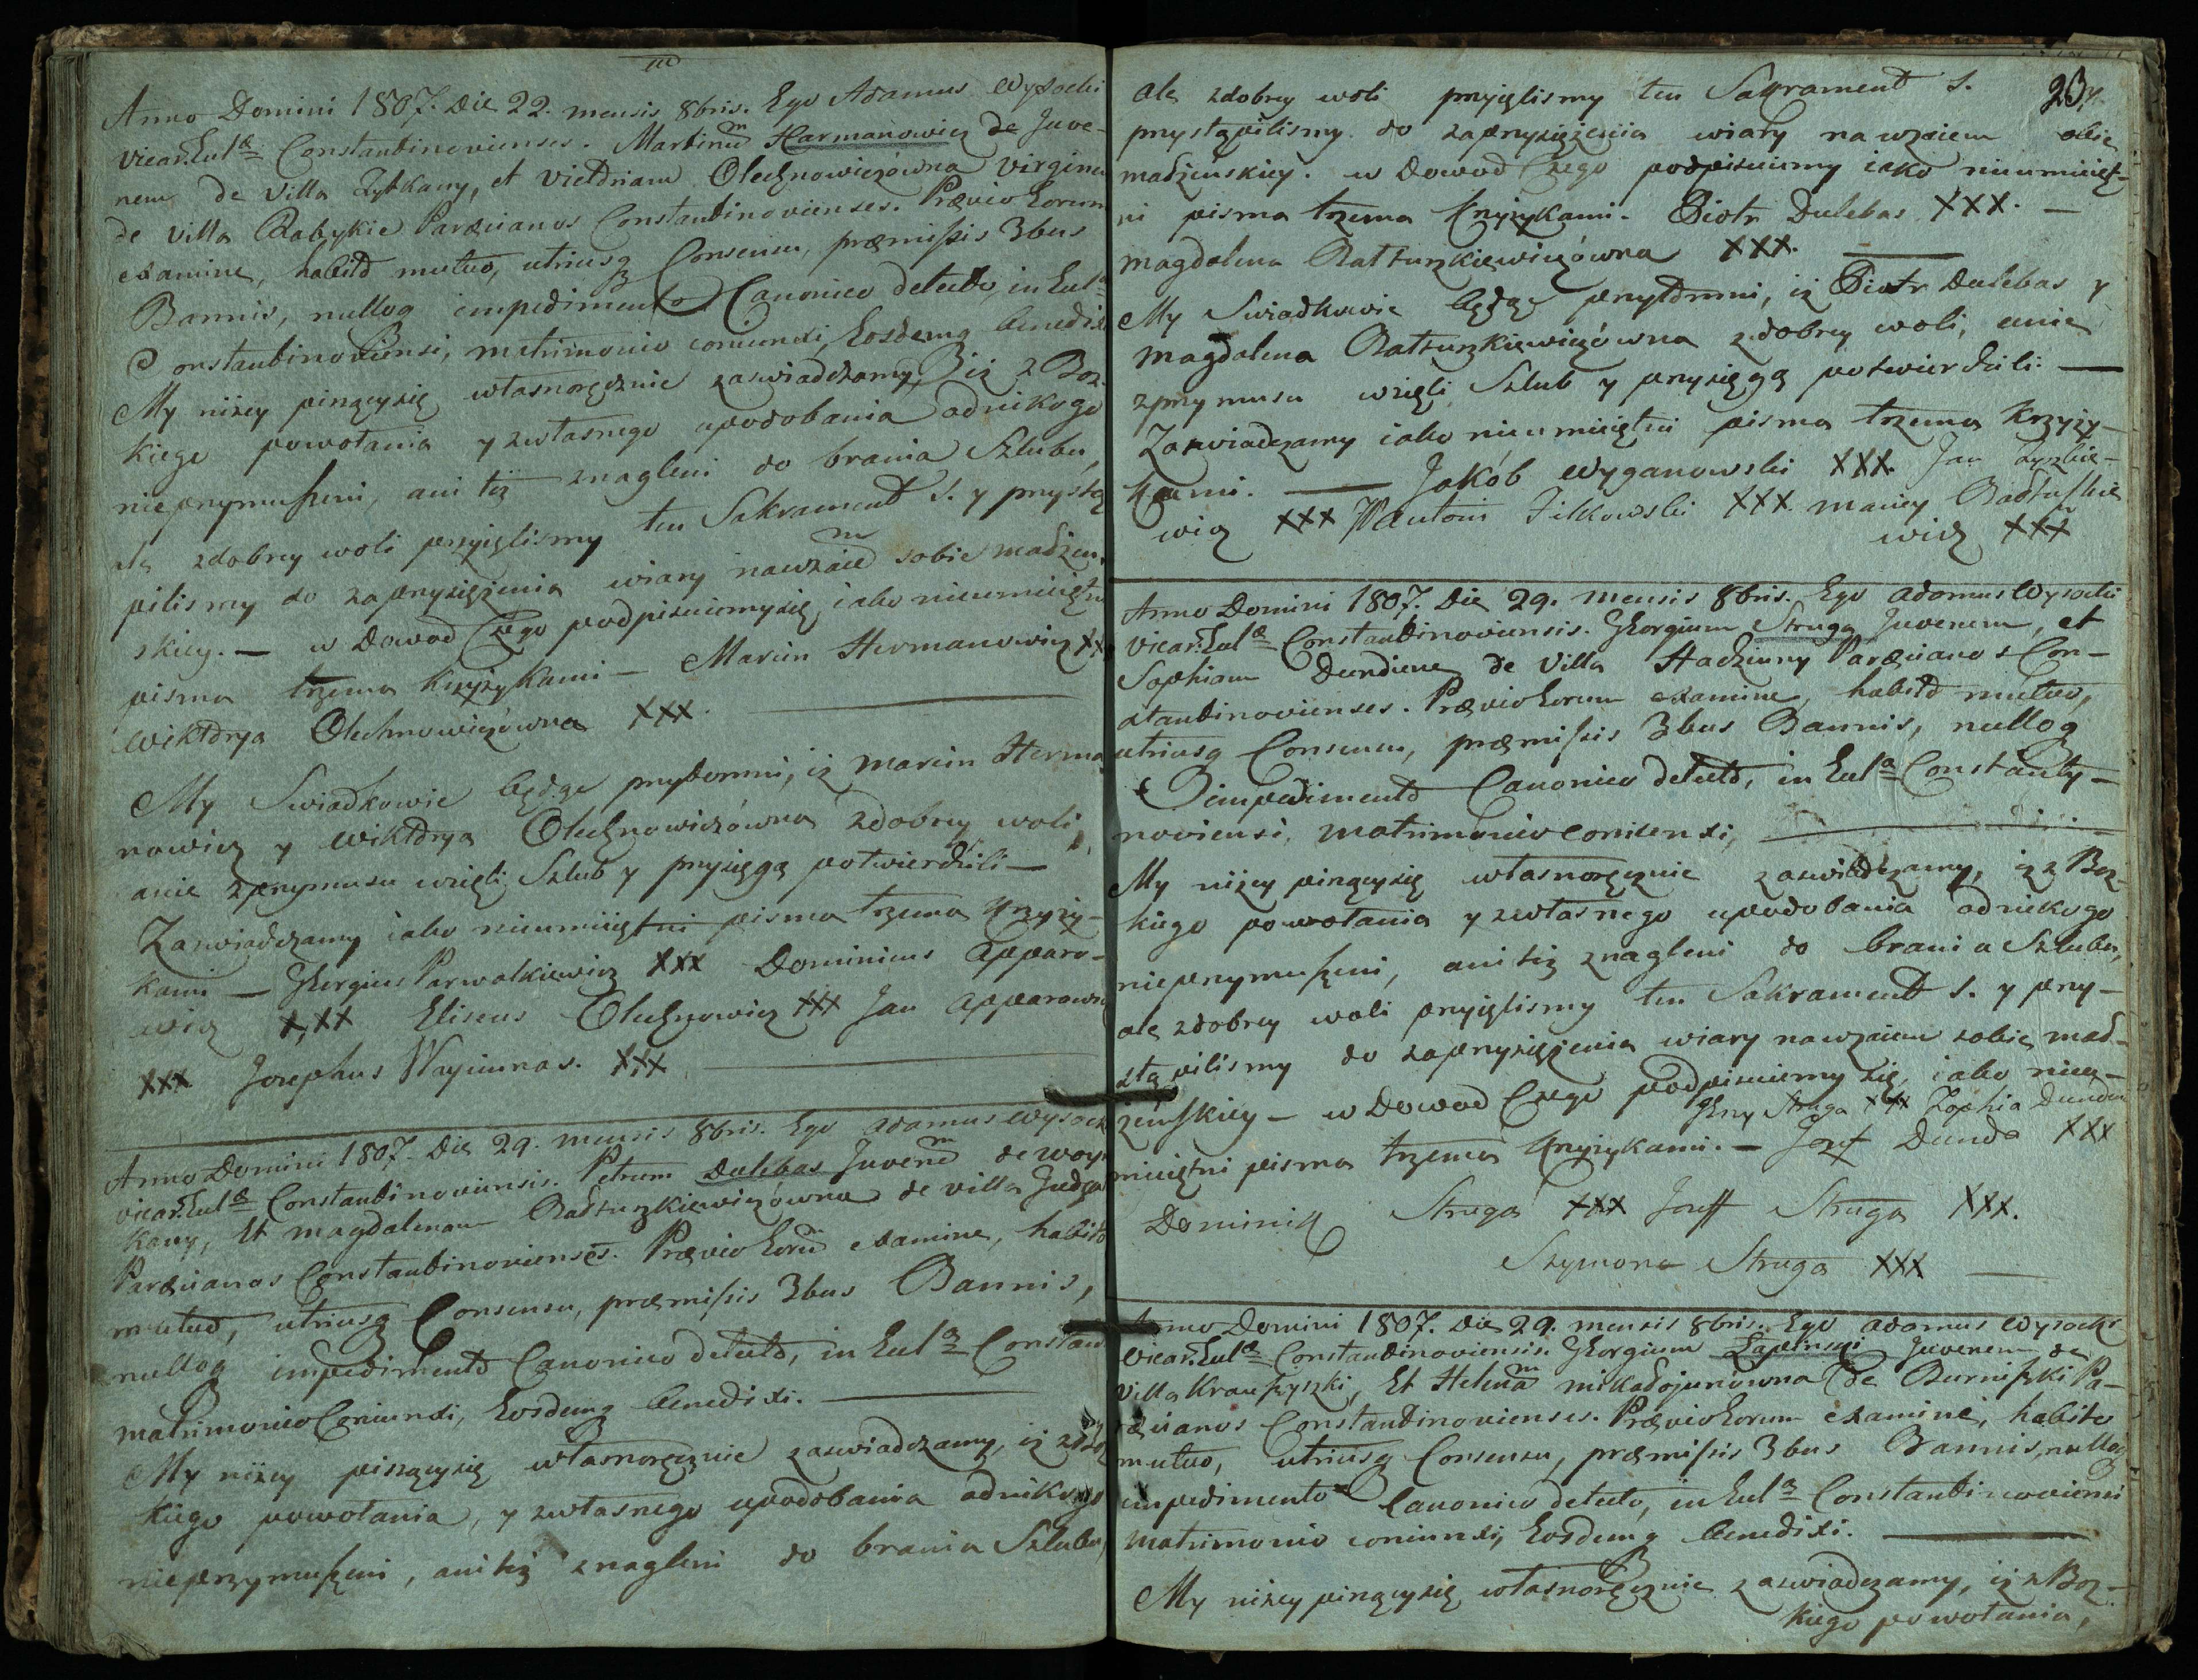 Anno Domini 1807. Die 22. mensis 8bris. Ego Adamus Wysocki
Vicar. Eulæ Constantinovienses. Martinum Harmanowicz de Juve-
nem de Villa Zytkany, et Victoriam Olechnowiczówna Virginem
de Villa Babykie Paræcianos Constantinovienses. Prævio Eorum
examine, habito mutuo, utriusq Consensu, præmissis 3bus
Bannis, nulloq impedimento Canonico detecto, in Eula
Constantinoviensi, matrimonio coniunxi, Eosdemq benedixi
My niżey piszącysię własnoręcznie zaswiadczamy, iż z Boz-
kiego powołania y zwłasnego upodobania odnikogo
nieprzymuszeni, ani też znagleni do brania Szlubu,
ale zdobrey woli przyięlismy ten Sakrament S. y przystą
pilismy do zaprzysiężenia wiary nawzaiem sobie madżen-
skiey. — w Dowod Czego podpisuiemysię, iako nieumieiętni
pisma trzema krzyżykami — Marcin Hermanowicz XX
Wiktorya Olechnowiczówna XXX.
My Swiadkowie będąc przytomni, iż Marcin Herma
nowicz y Wiktorya Olechnowiczówna zdobrey woli,
anie zprzymusu wzięli Szlub y przysięgą potwierdzili —
Zaswiadczamy iako nieumieiętni pisma trzema Krzyży-
kami — Georgius Parwalkiewicz XXX Dominicus Apparo-
wicz XXX Eliseus Olechnowicz XXX Jan Apparowicz
XXX Josephus Wayciunas. XXX
Anno Domini 1807. Die 29. mensis 8bris. Ego Adamus Wysocki
vicar. Eulæ Constantinoviensis. Petrum Dulebas Juvenem de Woy-
kany, Et Magdalenam Bałtuzkiewiczówna de villa Judza
Paræcianos Constantinovienses. Prævio Eorum examine, habito
mutuo, utriusq Consensu, præmissis 3bus Bannis,
nulloq impedimento Canonico detecto, in Eula Constan
matrimonio Coniunxi, Eosdemq benedixi.
My niżey piszącysię własnoręcznie zaswiadczamy, iż z Boz
kiego powołania, y zwłasnego upodobania odnikogo
nieprzymuszeni, ani też znagleni do brania Szlubu,
23
ale zdobrey woli przyięlismy ten Sakrament S.
przystąpilismy do zaprzysiężenia wiary nawzaiem sobie
madżenskiey. w Dowod Czego podpisuiemy iako nieumieięt-
ni pisma trzema krzyżykami. Piotr Dulebas XXX. —
Magdalena Bałtuzkiewiczówna XXX.
My Swiadkowie będąc przytomni, iż Piotr Dulebas y
Magdalena Bałtuzkiewiczówna zdobrey woli, anie
zprzymusu wzięli Szlub y przysięgą potwierdzili. —
Zaswiadczamy iako nieumieiętni pisma trzema krzyży-
kami. — Jakób Wyganowski XXX. Jan
wicz XXX Antoni Zilkowski XXX. Maciey Bałtuszkie
wicz XXX
Anno Domini 1807. Die 29. mensis 8bris. Ego Adamus Wysocki
vicar. Eulæ Constantinoviensis. Georgium Struga Juvenem, et
Sophiam Dundiene de Villa Stadziuny Paræcianos Con-
stantinovienses. Prævio Eorum examine, habito mutuo,
utriusq Consensu, præmissis 3bus Bannis, nulloq
impedimento Canonico detecto, in Eula Constanty-
noviensi, matrimonio coniunxi,
My niżey piszącysię własnoręcznie zaswiadczamy, iż z Boz-
kiego powołania y zwłasnego upodobania odnikogo
nieprzymuszeni, ani też znagleni do brania Szlubu,
ale zdobrey woli przyięlismy ten Sakrament S. y przy-
stąpilismy do zaprzysiężenia wiary nawzaiem sobie mad-
żenskiey — w Dowod Czego podpisuiemy się, iako nieu-
Jerzy Struga XXX Zophia Dundien
mieiętni pisma trzema krzyżykami. — Jozef Dunda XXX
Dominik Struga XXX Joseff Struga XXX.
Szymona Struga XXX —
Anno Domini 1807. Die 29. mensis 8bris. Ego Adamus Wysocki
Vicar. Eulæ Constantinoviensis. Georgium Łapinski Juvenem de
Villa Krauszyszki, Et Helenam Mikadojunówna de Burniszki Pa-
ræcianos Constantinovienses. Prævio Eorum examine, habito
mutuo, utriusq Consensu, præmissis 3bus Bannis, nulloq
impedimento Canonico detecto, in Eula Constantinoviensi
matrimonio coniunxi, Eosdemq benedixi.
My niżey piszącysię własnoręcznie zaswiadczamy, iż z Boz-
kiego powołania,